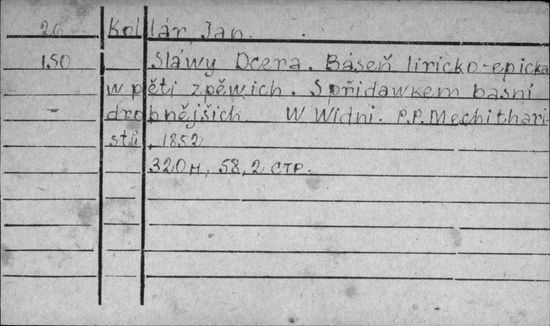 26 Kollár, Jan.
150 Sláwy Dcera. Báseň liricko-epicka
w pěti zpěwich. S přídawkem básní
drobnějších W Widni. P.P. Mechithari-
stů, 1852
320 н, 58, 2 стр.